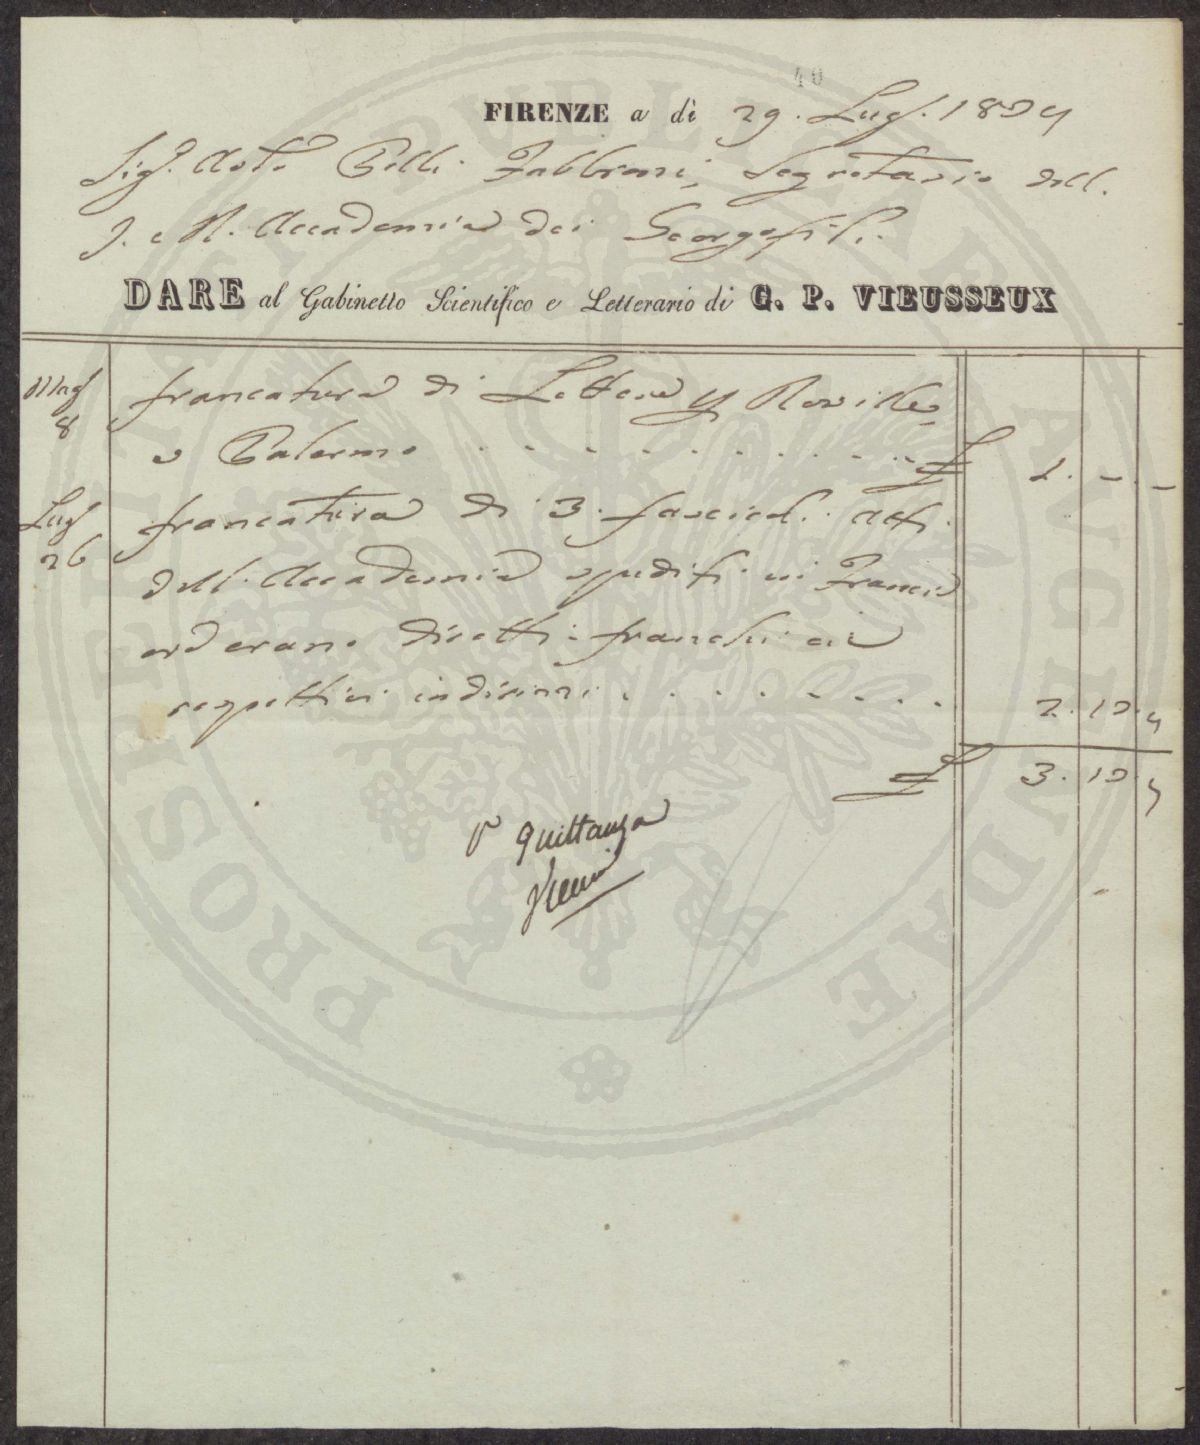 40
FIRENZE a dì 29. Lugl. 1824
Sig.r Aut.o Pelli Fabbroni, Segretario dell.
I. e R. Accademia dei Georgofili.
DARE al Gabinetto Scientifico e Letterario di G. P. VIEUSSEUX
Mag francatura di Lettera p Roville,
8 a Palermo . . . . . . . . . . £ 1. – –
Lug francatura di 3. fascicol. atti.
26 dell. Accademia spediti in Francia
ed erano diretti franchi ai
respettivi indirizzi . . . . . . . 2. 10. 4
£ 3. 10. 4
P Quittanza
PROSPERITATI PUBLICAE AUGENDAE